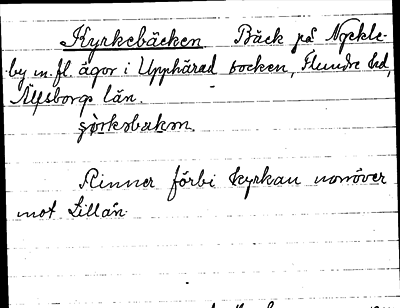 Kyrkebäcken Bäck på Nyckle-
by m.fl. ägor i Upphärad socken, Flundre hd,
Älfsborgs län.
Rinner förbi kyrkan norröver
mot Lillån